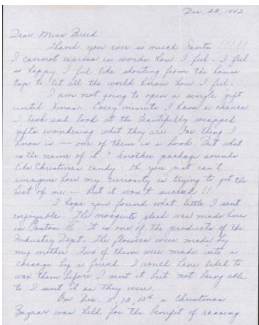 Dec. 22, 1942
Dear Miss Breed
Thank you ever so much Santa !!!!!
I cannot express in words how I feel. I feel
so happy I feel like shouting from the house
tops to let all the world know how I feel.
I am not going to open a single gift
until Xmas. Every minute I have a chance
I look and look at the beautifully wrapped
gifts wondering what they are. One thing I
know is — one of them is a book. But what
is the name of it? Another package sounds
like Christmas candy. Oh, you just can't
imagine how my curiosity is trying to get the
best of me — But it won't succeed!!
I hope you found what little I sent
enjoyable. The mosquito was made here
in Poston III. It is one of the products of the
Industry Dept. The flowers were made by
my mother. Two of them were made into a
corsage by a friend. I would have liked to
them before I sent it but not being able
to I sent it as they were.
On Dec. 18, 19, 20th a Christmas
Bazaar was held for the benefit of raising